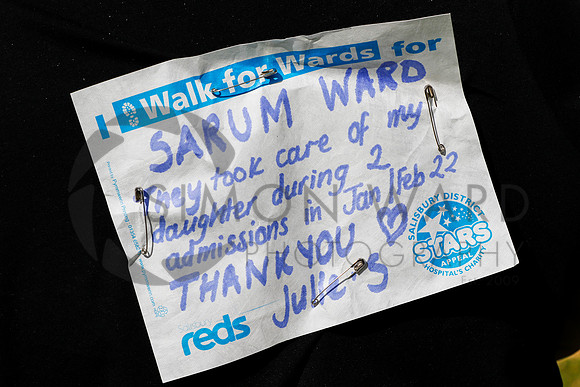 I Walk for Wards for
SARUM WARD
They took care of my
daughter during 2
admissions in Jan/Feb 22
THANKYOU
Julie S
reds
SALISBURY DISTRICT
STARS
APPEAL
HOSPITAL'S CHARITY
SIMON WARD
PHOTOGRAPHY